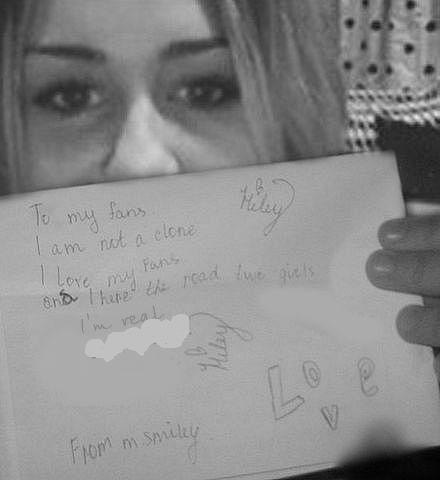 To my fans
I am not a clone
I Love my Fans
and I here the road two girls
I'm real
Love
From m smiley